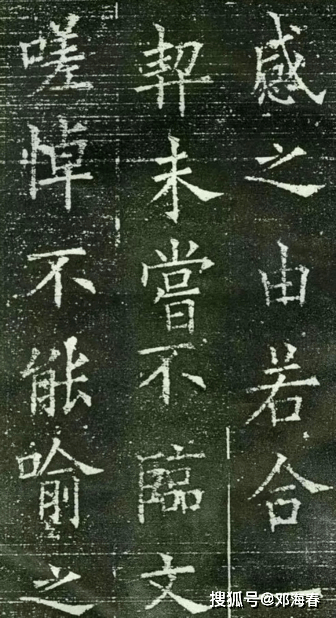 感之由若合一
契未嘗不臨文
嗟悼不能喻之
搜狐号@邓海春